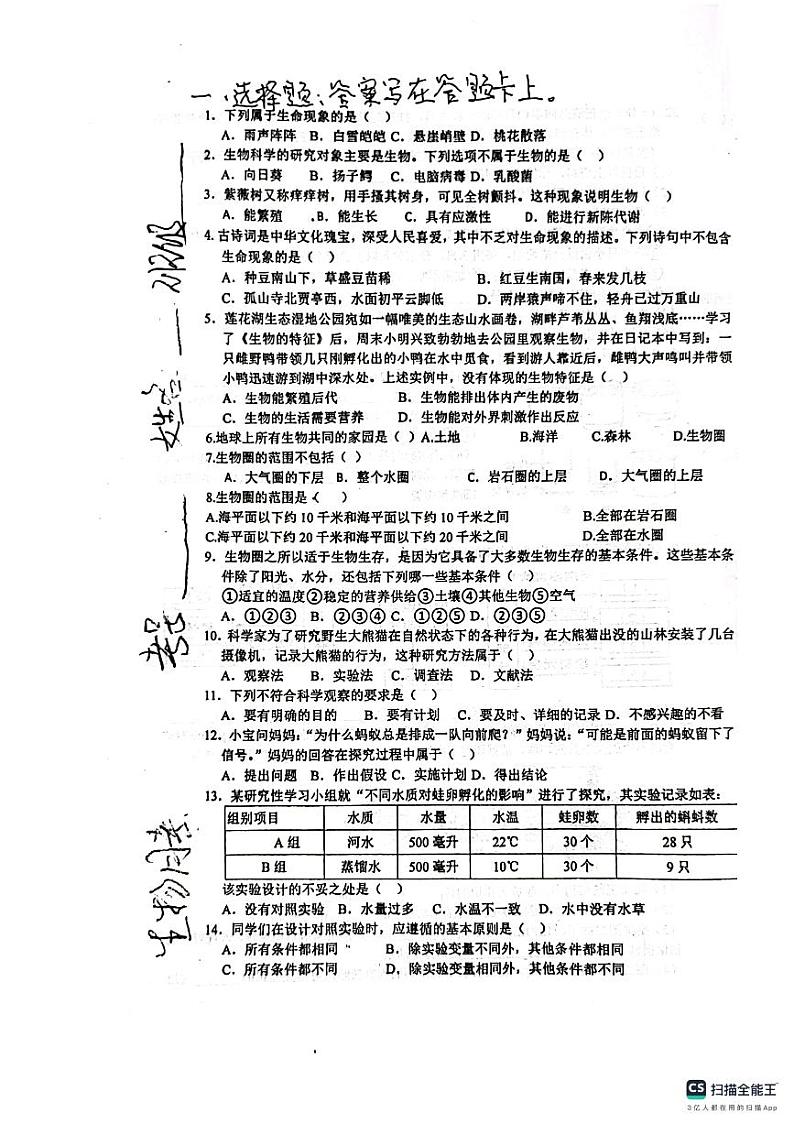 一、选择题：答案写在答题卡上。
1．下列属于生命现象的是（ ）
A．雨声阵阵 B．白雪皑皑 C．悬崖峭壁 D．桃花散落
2．生物科学的研究对象主要是生物。下列选项不属于生物的是（ ）
A．向日葵 B．扬子鳄 C．电脑病毒 D．乳酸菌
3．紫薇树又称痒痒树，用手搔其树身，可见全树颤抖。这种现象说明生物（ ）
A．能繁殖 B．能生长 C．具有应激性 D．能进行新陈代谢
4.古诗词是中华文化瑰宝，深受人民喜爱，其中不乏对生命现象的描述。下列诗句中不包含
生命现象的是（ ）
A．种豆南山下，草盛豆苗稀 B．红豆生南国，春来发几枝
C．孤山寺北贾亭西，水面初平云脚低 D．两岸猿声啼不住，轻舟已过万重山
5．莲花湖生态湿地公园宛如一幅唯美的生态山水画卷，湖畔芦苇丛丛、鱼翔浅底……学习
了《生物的特征》后，周末小明兴致勃勃地去公园里观察生物，并在日记本中写到：一
只雌野鸭带领几只刚孵化出的小鸭在水中觅食，看到游人靠近后，雌鸭大声鸣叫并带领
小鸭迅速游到湖中深水处。上述实例中，没有体现的生物特征是（ ）
A．生物能繁殖后代 B．生物能排出体内产生的废物
C．生物的生活需要营养 D．生物能对外界刺激作出反应
6.地球上所有生物共同的家园是（ ）A.土地 B.海洋 C.森林 D.生物圈
7.生物圈的范围不包括（ ）
A．大气圈的下层 B．整个水圈 C．岩石圈的上层 D．大气圈的上层
8.生物圈的范围是（ ）
A.海平面以下约 10 千米和海平面以下约 10 千米之间 B.全部在岩石圈
C.海平面以下约 20 千米和海平面以下约 20 千米之间 D.全部在水圈
9．生物圈之所以适于生物生存，是因为它具备了大多数生物生存的基本条件。这些基本条
件除了阳光、水分，还包括下列哪一些基本条件（ ）
①适宜的温度②稳定的营养供给③土壤④其他生物⑤空气
A．①②③ B．②③④ C．①②⑤ D．②③⑤
10．科学家为了研究野生大熊猫在自然状态下的各种行为，在大熊猫出没的山林安装了几台
摄像机，记录大熊猫的行为，这种研究方法属于（ ）
A．观察法 B．实验法 C．调查法 D．文献法
11．下列不符合科学观察的要求是（ ）
A．要有明确的目的 B．要有计划 C．要及时、详细的记录 D．不感兴趣的不看
12．小宝问妈妈：“为什么蚂蚁总是排成一队向前爬？”妈妈说：“可能是前面的蚂蚁留下了
信号。”妈妈的回答在探究过程中属于（ ）
A．提出问题 B．作出假设 C．实施计划 D．得出结论
13．某研究性学习小组就“不同水质对蛙卵孵化的影响”进行了探究，其实验记录如表：
组别项目 水质 水量 水温 蛙卵数 孵出的蝌蚪数
A 组 河水 500 毫升 22℃ 30 个 28 只
B 组 蒸馏水 500 毫升 10℃ 30 个 9 只
该实验设计的不妥之处是（ ）
A．没有对照实验 B．水量过多 C．水温不一致 D．水中没有水草
14．同学们在设计对照实验时，应遵循的基本原则是（ ）
A．所有条件都相同 B．除实验变量不同外，其他条件都相同
C．所有条件都不同 D．除实验变量相同外，其他条件都不同
班级
姓名
考号
CS 扫描全能王
3亿人都在用的扫描App